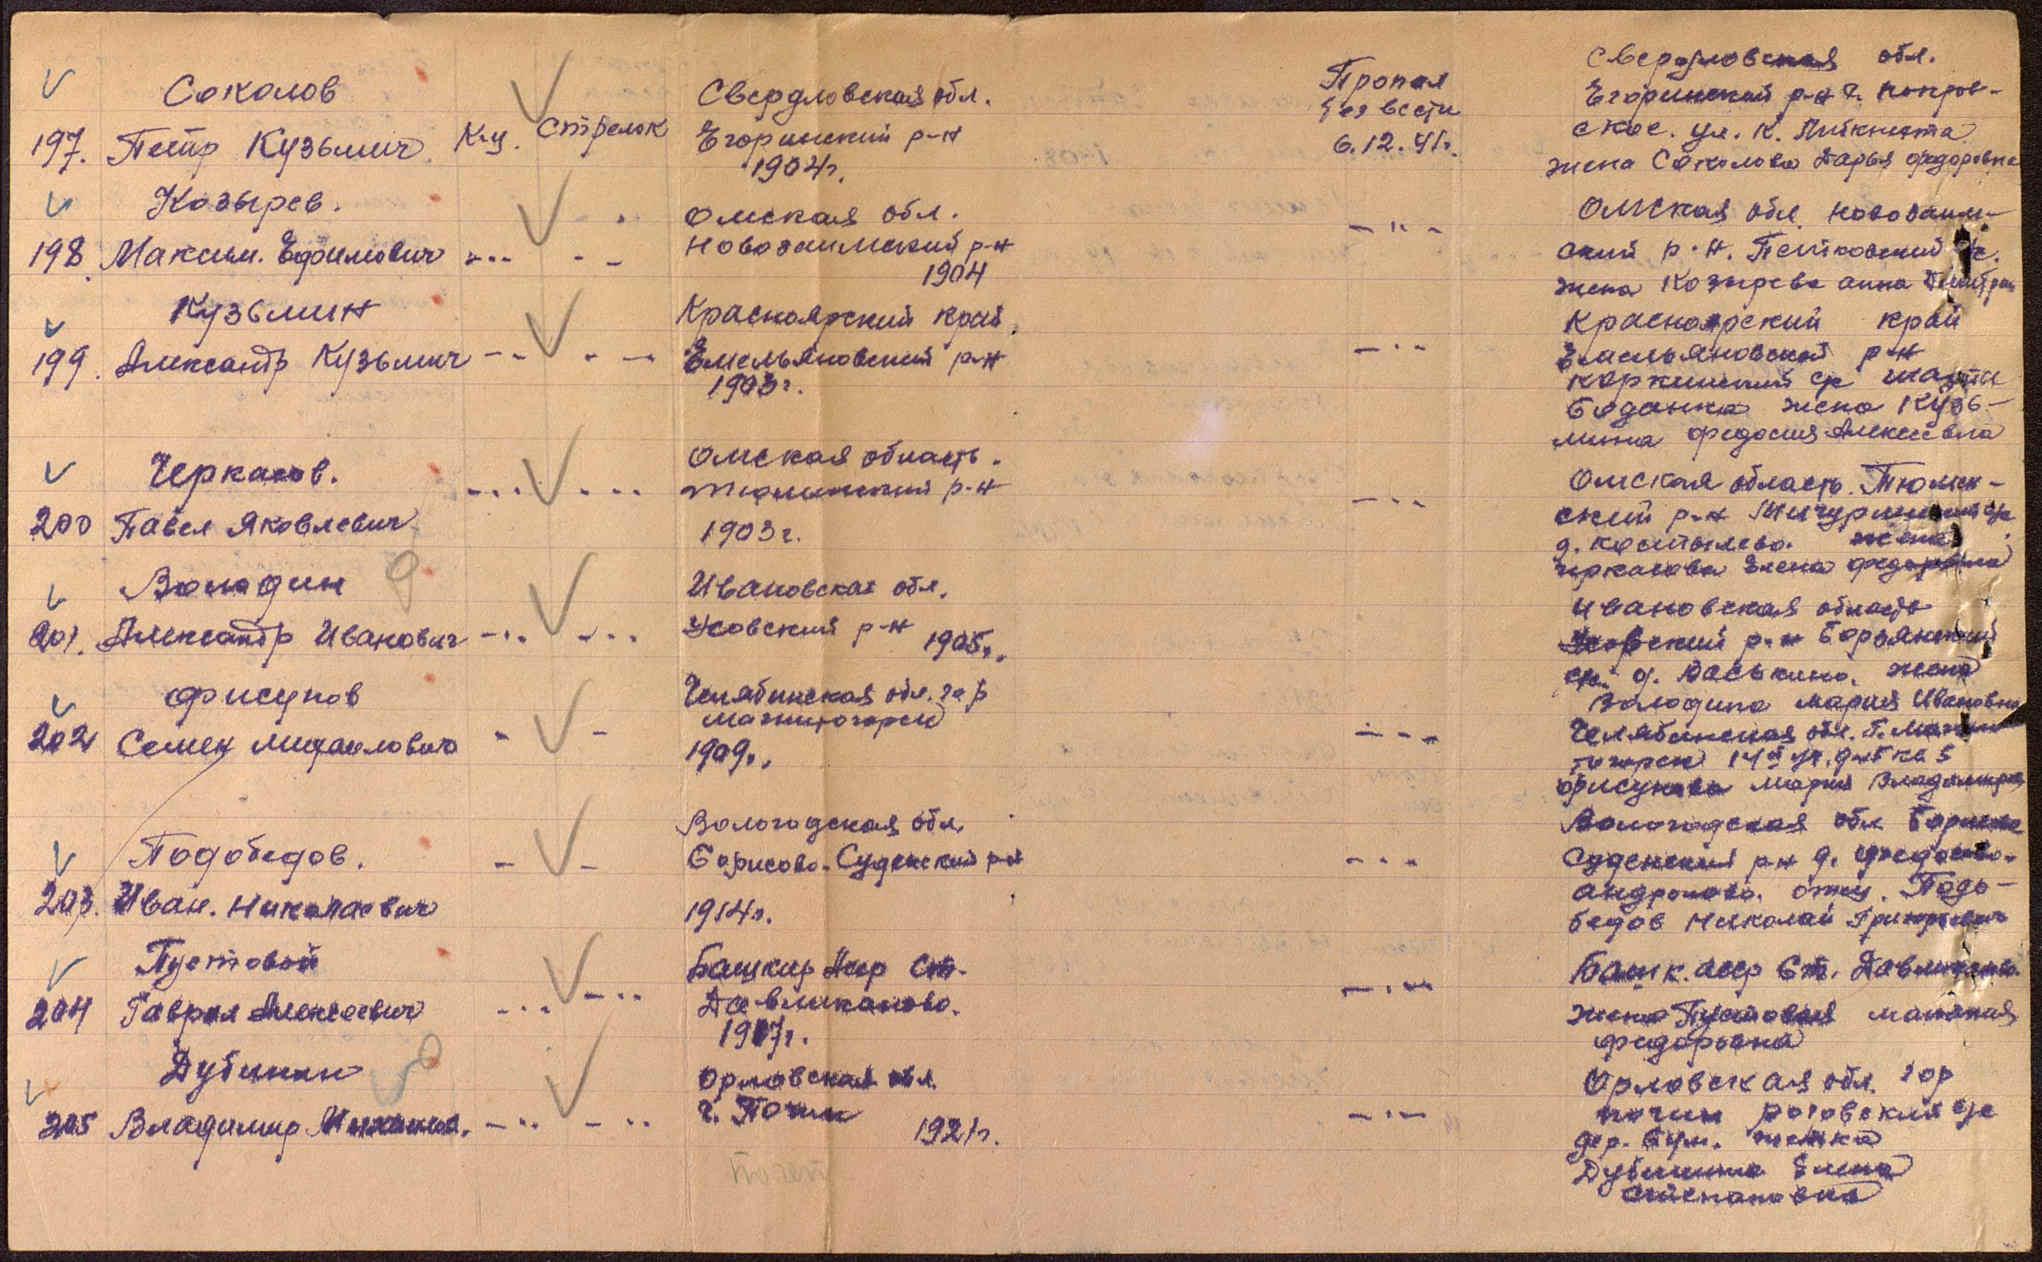 Соколов
197. Петр Кузьмич. К-ц. Стрелок
Свердловская обл.
Егоринский р-н
1904г.
Пропал
без вести
6.12.41г.
Свердловская обл.
Егоринский р-н с. Покров-
ское. ул. К. Либкнехта
жена Соколова Дарья Федоровна
Козырев.
198. Максим. Ефимович -"- -"-
Омская обл.
Новозаимский р-н
1904
-"-
Омская обл. Новозаим-
ский р-н. Петковский с/с.
жена Козырева Анна
Кузьмин
199. Александр Кузьмич -"- -"-
Красноярский край.
Емельяновский р-н
1903г.
-"-
Красноярский край
Емельяновский р-н
Коркинский с/с шахты
жена Кузь-
мина Федосия Алексеевна
Черкасов.
200 Павел Яковлевич -"- -"-
Омская область.
Тюменский р-н
1903г.
-"-
Омская область. Тюмен-
ский р-н Мичуринский с/с
д. Костылево. жена
Черкасова Елена Федоровна
Володин
201. Александр Иванович -"- -"-
Ивановская обл.
р-н 1905г.
Ивановская область
р-н
с/с. д. Васькино. жена
Володина Мария Ивановна
Фисунов
202 Семен Михайлович - -
Челябинская обл. гор
Магнитогорск
1909г.
-"-
Челябинская обл. г. Магни-
тогорск 14й уч. 5
Фисунова Мария Владимиров
Подобедов.
203. Иван. Николаевич - -
Вологодская обл.
Борисово-Суденский р-н
1914г.
-"-
Вологодская обл. Борисово
Суденский р-н д.
Андроново. отец. Подо-
бедов Николай Григорьевич
Пустовой
204 Гаврил Алексеевич -"- -"-
Башкир Аср ст.
Давлеканово.
1917г.
-"-
Башк. асср ст. Давлеканово
жена Пустовая
Федоровна
Дубинин
205 Владимир -"- -"-
Орловская обл.
г. Почин
1921г.
-"-
Орловская обл. гор
Почин Роговский с/с
дер.
Дубинина Елена
Степановна